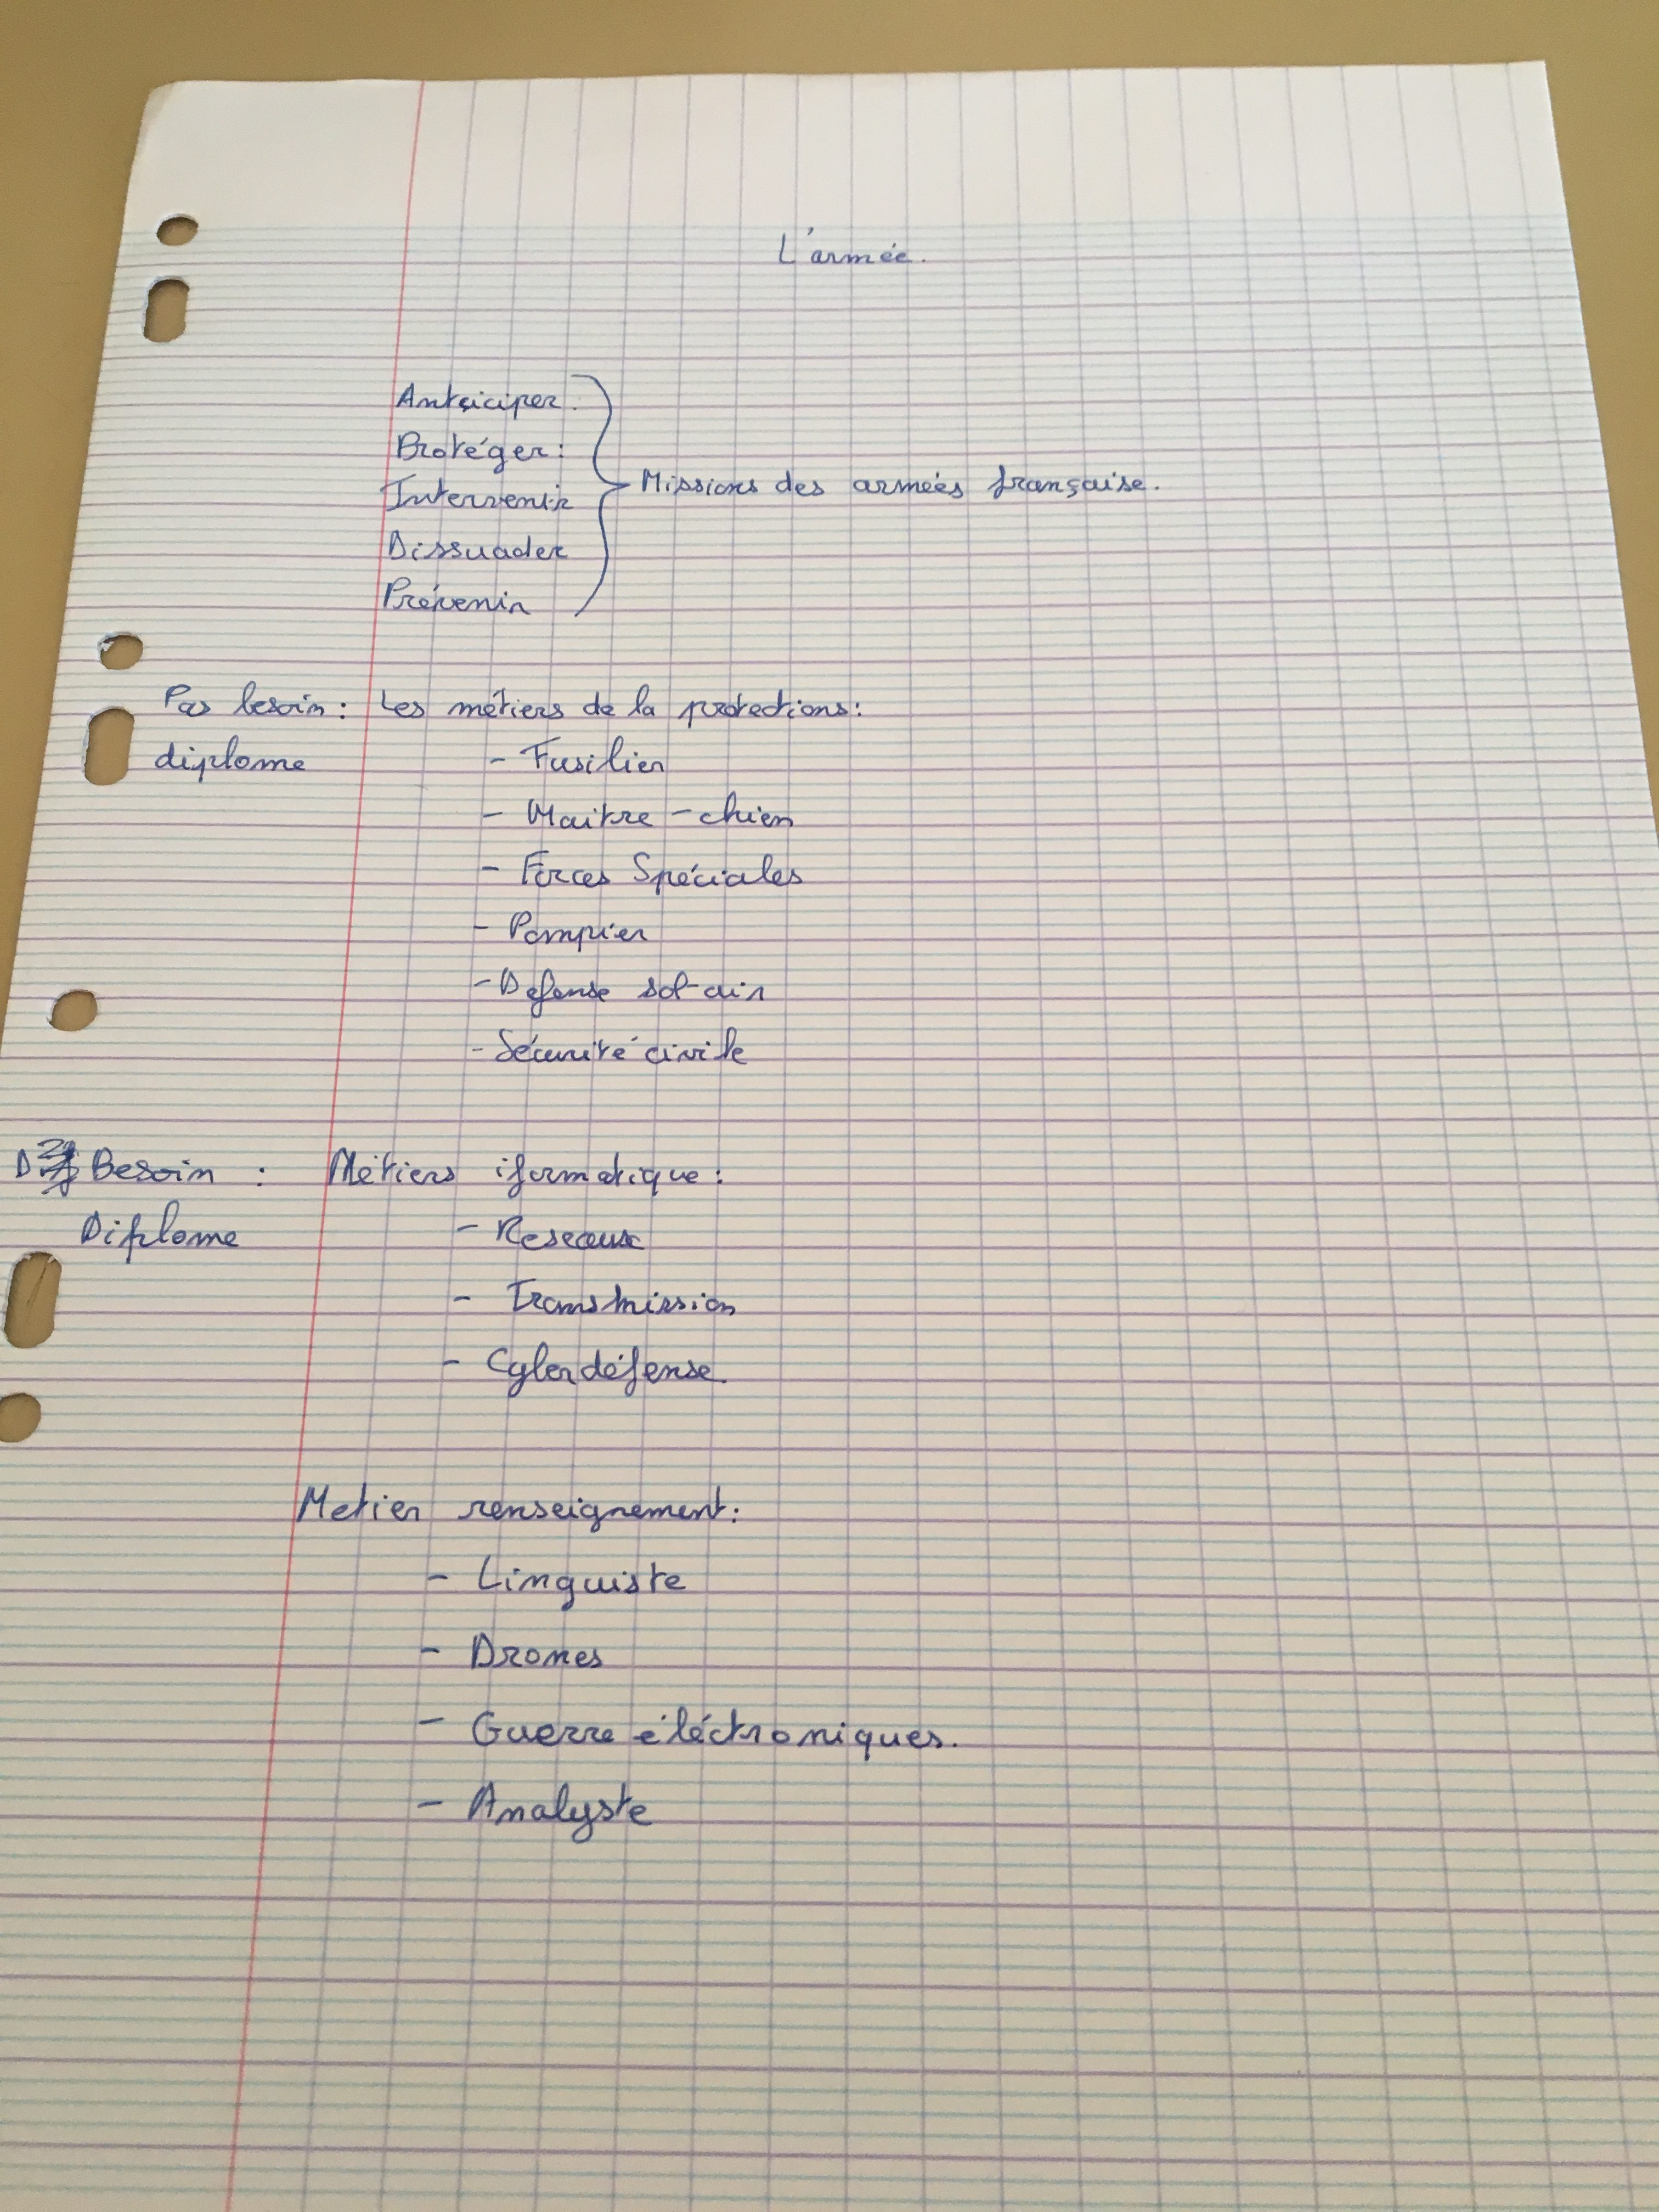 L'armée.
Anticiper.
Protéger :
Intervenir
Missions des armées française.
Dissuader
Prévenir
Pas besoin : Les métiers de la protections :
diplome
- Fusilier
- Maitre-chien
- Forces Spéciales
- Pompier
- Defense sol-air
- Sécurité civile
Besoin : Métiers iformatique :
Diplome
- Reseaux
- Transmission
- Cyberdéfense.
Metier renseignement :
- Linguiste
- Drones
- Guerre éléctroniques.
- Analyste